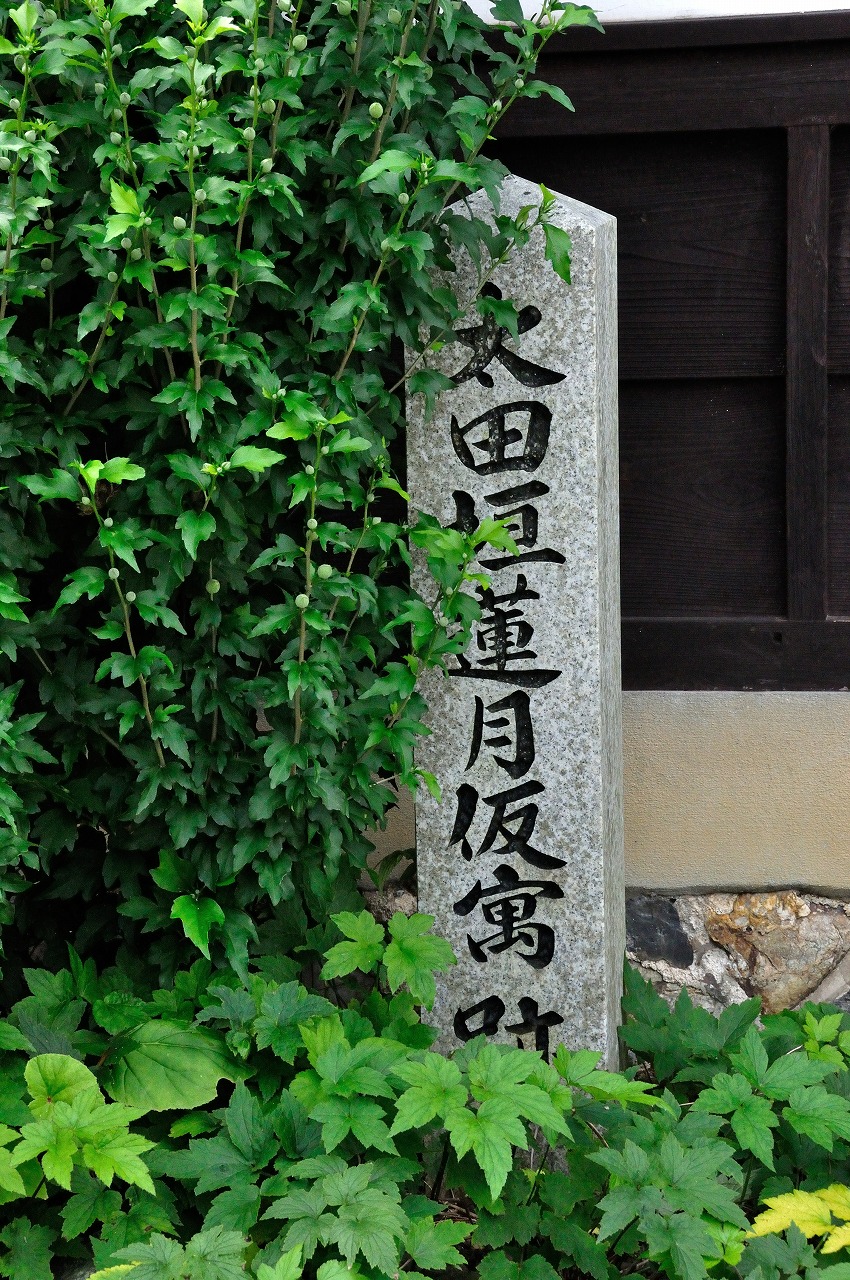 太田垣蓮月仮寓跡